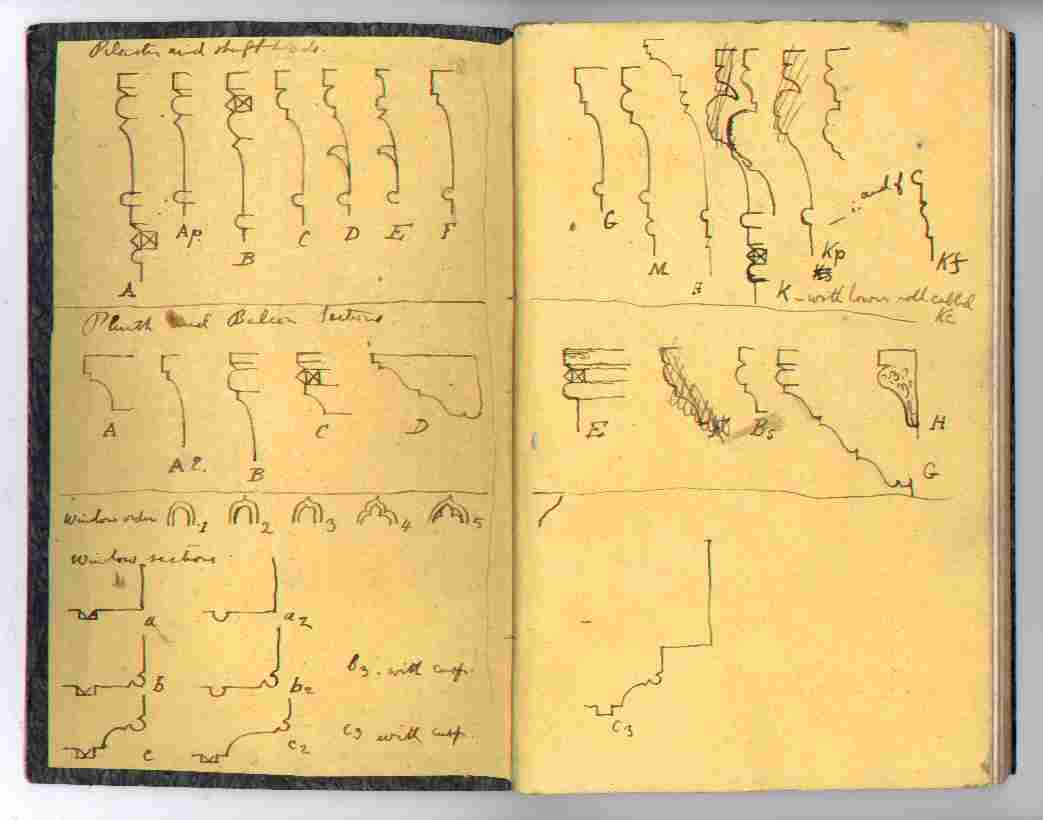 Pilaster and shaft heads.
A
Ap.
B
C
D
E
F
Plinth and Balcon Sections
A
A2.
B
C
D
Window orders 1 2 3 4 5
Window sections
a
a2
b
b2
b3. with cusp.
c
c2
c3 with cusp.
G
M
Kp
and f
Kf
K - with lower roll called
Kc
E
Bs
G
H
c3